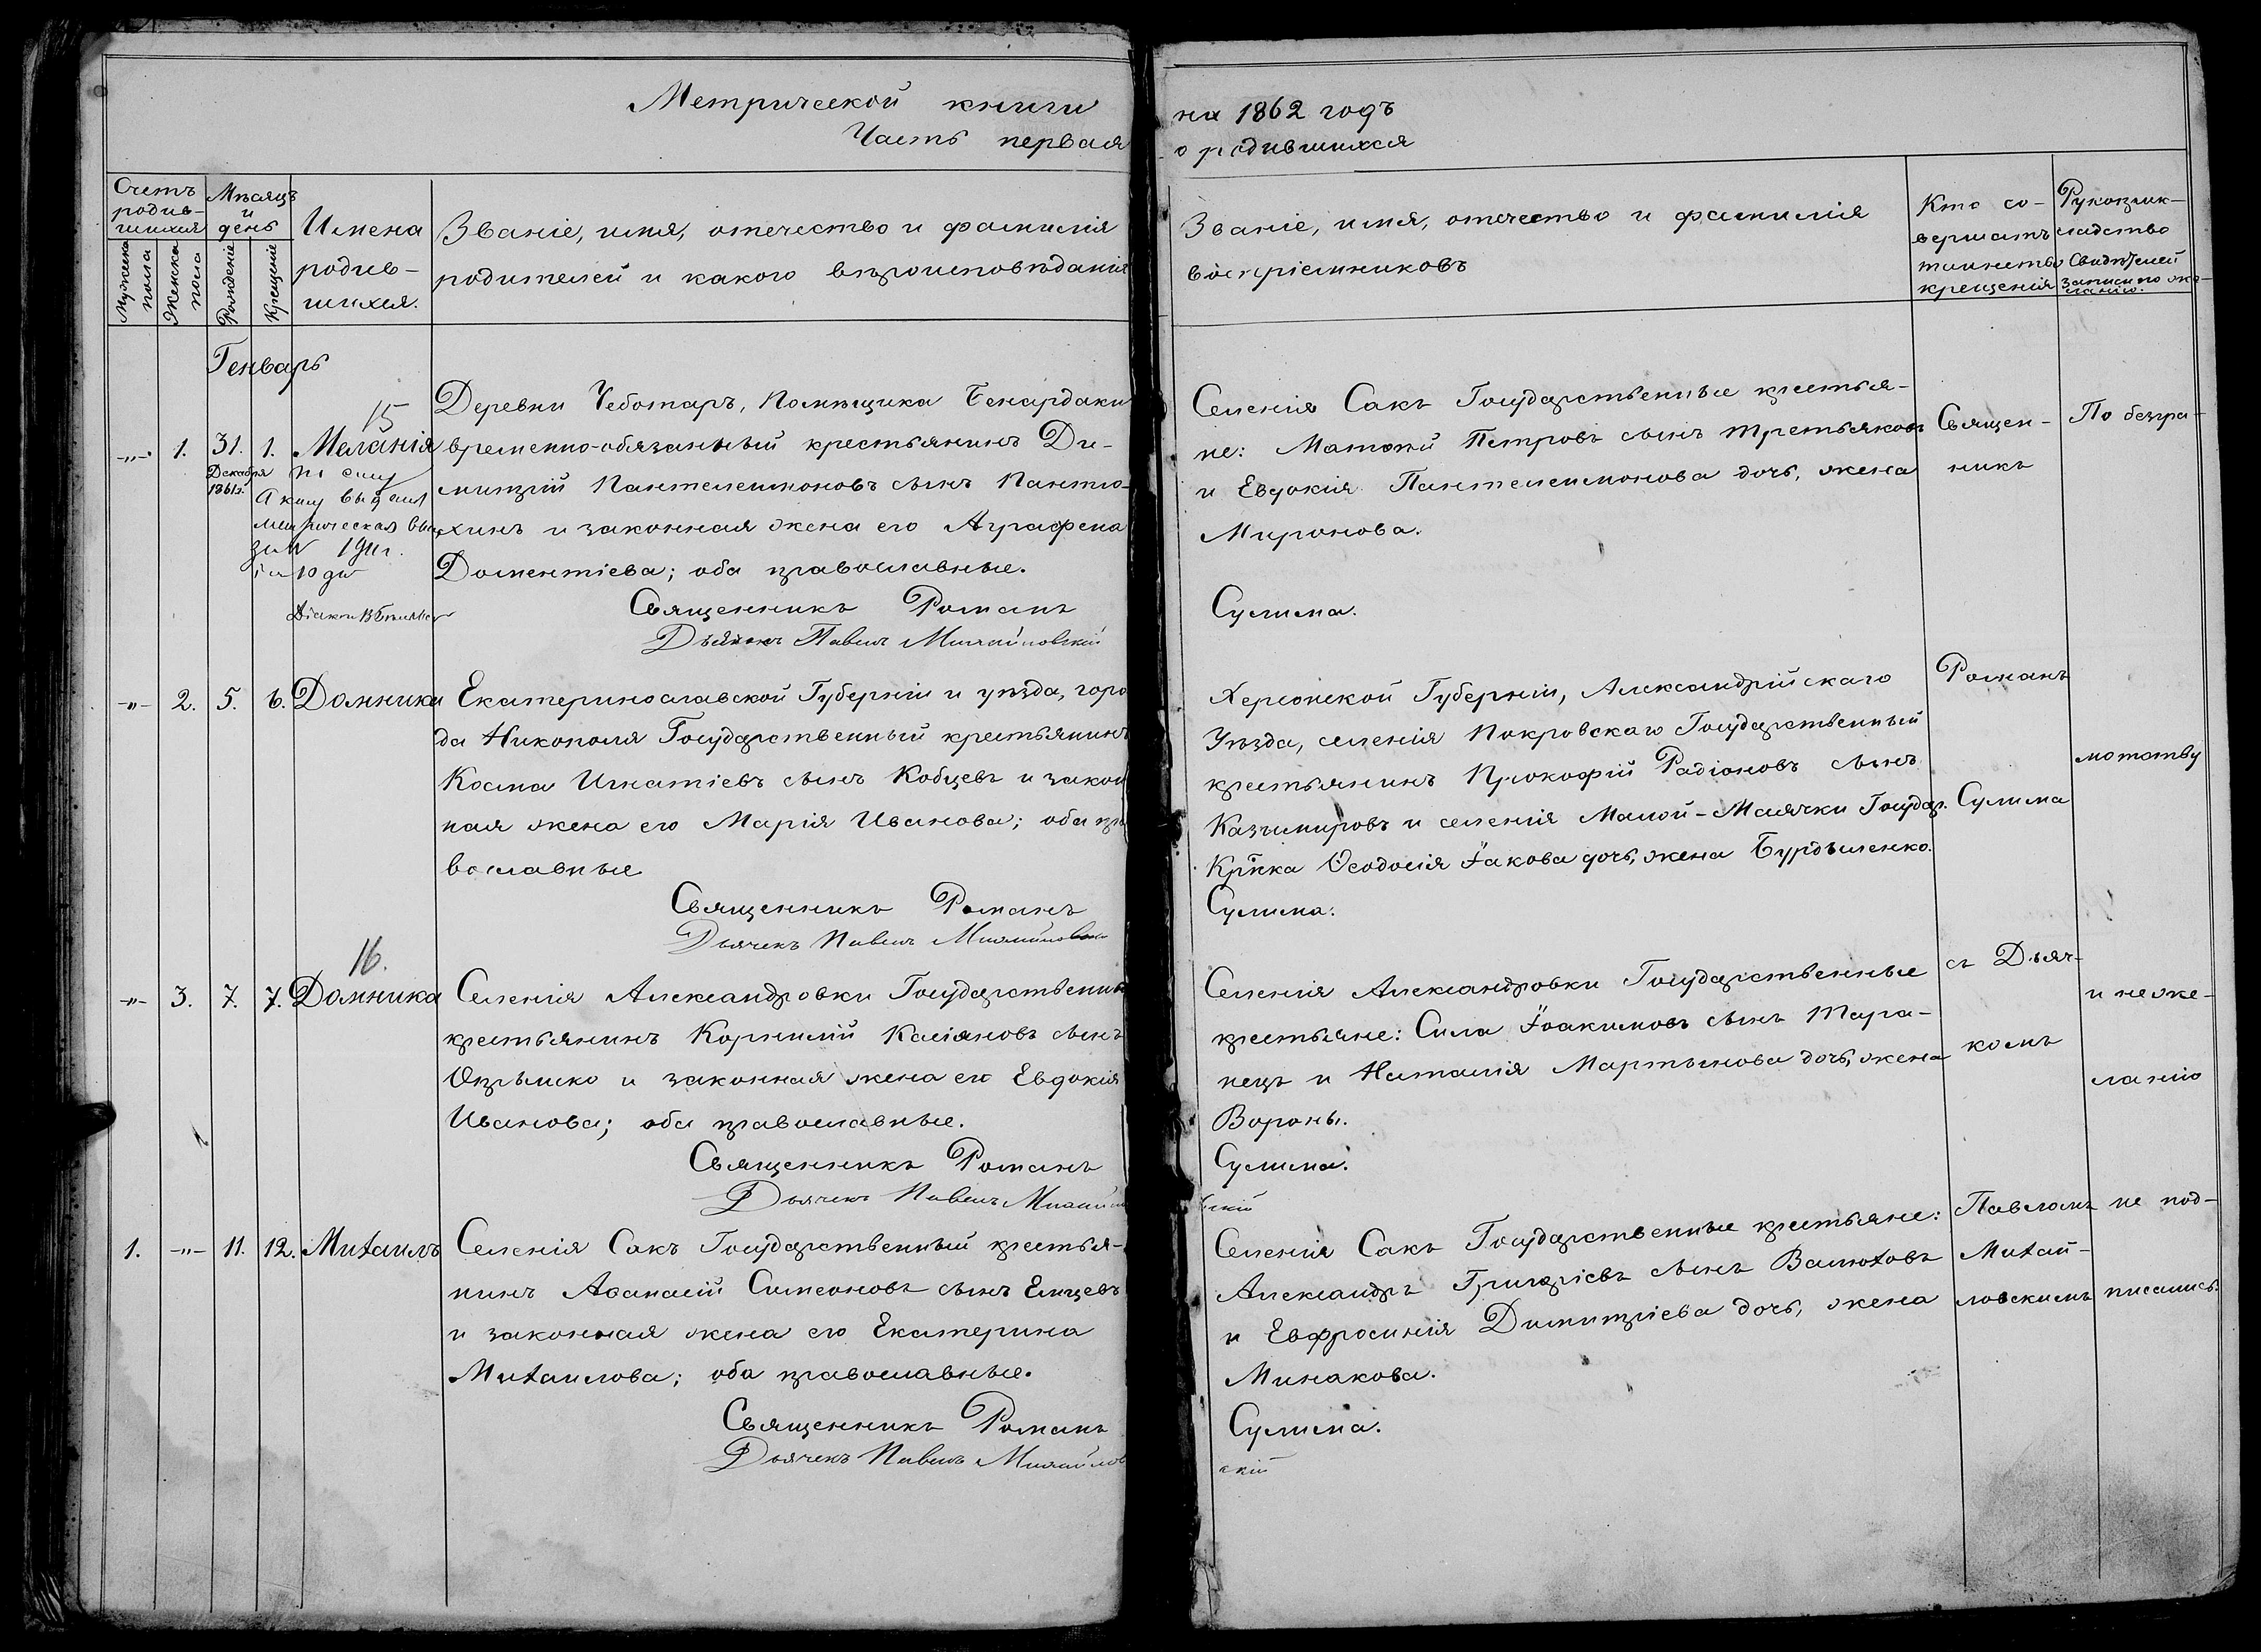 Метрической книги
на 1862 годъ
Часть первая
о родившихся
Счетъ
родив-
шихся
Мужеска
пола
Женска
пола
Мѣсяцъ
и
день
Рожденіе
Крещеніе
Имена
родив-
шихся.
Званіе, имя, отечество и фамилія
родителей и какого вѣроисповѣданія
Званіе, имя, отечество и фамилія
воспріемниковъ
Кто со-
вершалъ
таинство
крещенія
Рукоприк-
ладство
Свидѣтелей
записи по же-
ланію.
Генварь
-„- 1. 31. 1. Меланія
Декабря
1861г.
15
Деревни Чеботаръ, Помѣщика Бенардаки
временно-обязанный крестьянинъ Ди-
митрій Пантелеимоновъ сынъ Панто-
хинъ и законная жена его Аграфена
Доментіева; оба православные.
Священникъ Романъ
Дьячекъ Павелъ Михайловскій
Селенія Сакъ Государственные крестья-
не: Матѳей Петровъ сынъ Третьяковъ
и Евдокія Пантелеимонова дочь, жена
Миронова.
Сулима.
-„- 2. 5. 6. Домника
Екатеринославской Губерніи и уѣзда, горо
да Никополя Государственный крестьянинъ
Косма Игнатіевъ сынъ Кобцевъ и закон
ная жена его Марія Иванова; оба пра
вославные
Священникъ Романъ
Дьячекъ Павелъ
Херсонской Губерніи, Александрійскаго
Уѣзда, селенія Покровскаго Государственный
крестьянинъ Прокофій Радіоновъ сынъ
Казимировъ и селенія Малой-Маячки Государ.
Кр҃нка Ѳеодосія Іакова дочь, жена
Сулима.
16.
-„- 3. 7. 7. Домника
Селенія Александровки Государственный
крестьянинъ Корнилій Касіяновъ сынъ
и законная жена его Евдокія
Иванова; оба православные.
Священникъ Романъ
Дьячекъ Павелъ Михайлов
скій
Селенія Александровки Государственные
крестьяне: Сила Іоакимовъ сынъ Тара-
нецъ и Наталія Мартынова дочь, жена
Вороны.
Сулима.
1. -„- 11. 12. Михаилъ
Селенія Сакъ Государственный крестья-
нинъ Аѳанасій Симеоновъ сынъ Елицевъ
и законная жена его Екатерина
Михаилова; оба православные.
Священникъ Романъ
Дьячекъ Павелъ Михайлов
скій
Селенія Сакъ Государственные крестьяне:
Александръ Григоріевъ сынъ Валюховъ
и Евфросинія Димитріева дочь, жена
Минакова.
Сулима.
Священ-
никъ
Романъ
Сулима
съ Дьяч-
комъ
Павломъ
Михай-
ловскимъ
По безгра-
мотству
и неже-
ланію
не под-
писались.